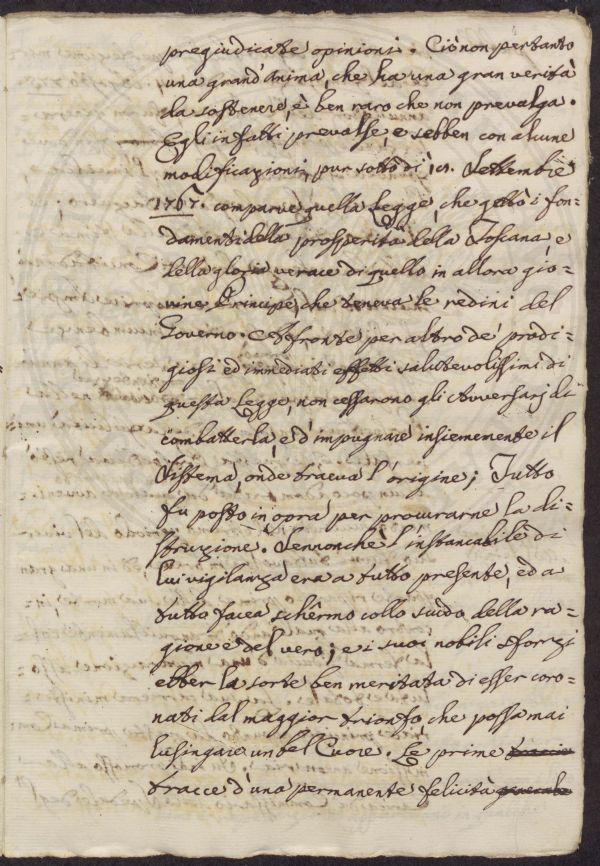 pregiudicate opinioni. Ciò non pertanto
una grand'anima, che ha una gran verità
da sostenere, è ben raro che non prevalga.
Egli infatti prevalse, e sebben con alcune
modificazioni, pur sotto dì 18. Settembre
1767. comparve quella Legge, che gettò i fon=
damenti della prosperità della Toscana, e
della gloria verace di quello in allora gio=
vine Principe, che teneva le redini del
Governo. A fronte per altro de' prodi=
giosi ed immediati effetti salutevolissimi di
questa Legge, non cessarono gli Avversarj di
combatterla, e d'impugnare insiememente il
Sistema, onde traeva l'origine; Tutto
fu posto in opra per procurarne la di=
struzione. Sennonchè l'instancabile di
lui vigilanza era a tutto presente, ed a
tutto facea schermo collo scudo della ra=
gione e del vero; e i suoi nobili sforzi
ebber la sorte ben meritata di esser coro=
nati dal maggior trionfo, che possa mai
lusingare un bel Cuore. Le prime traccie
tracce d'una permanente felicità generale